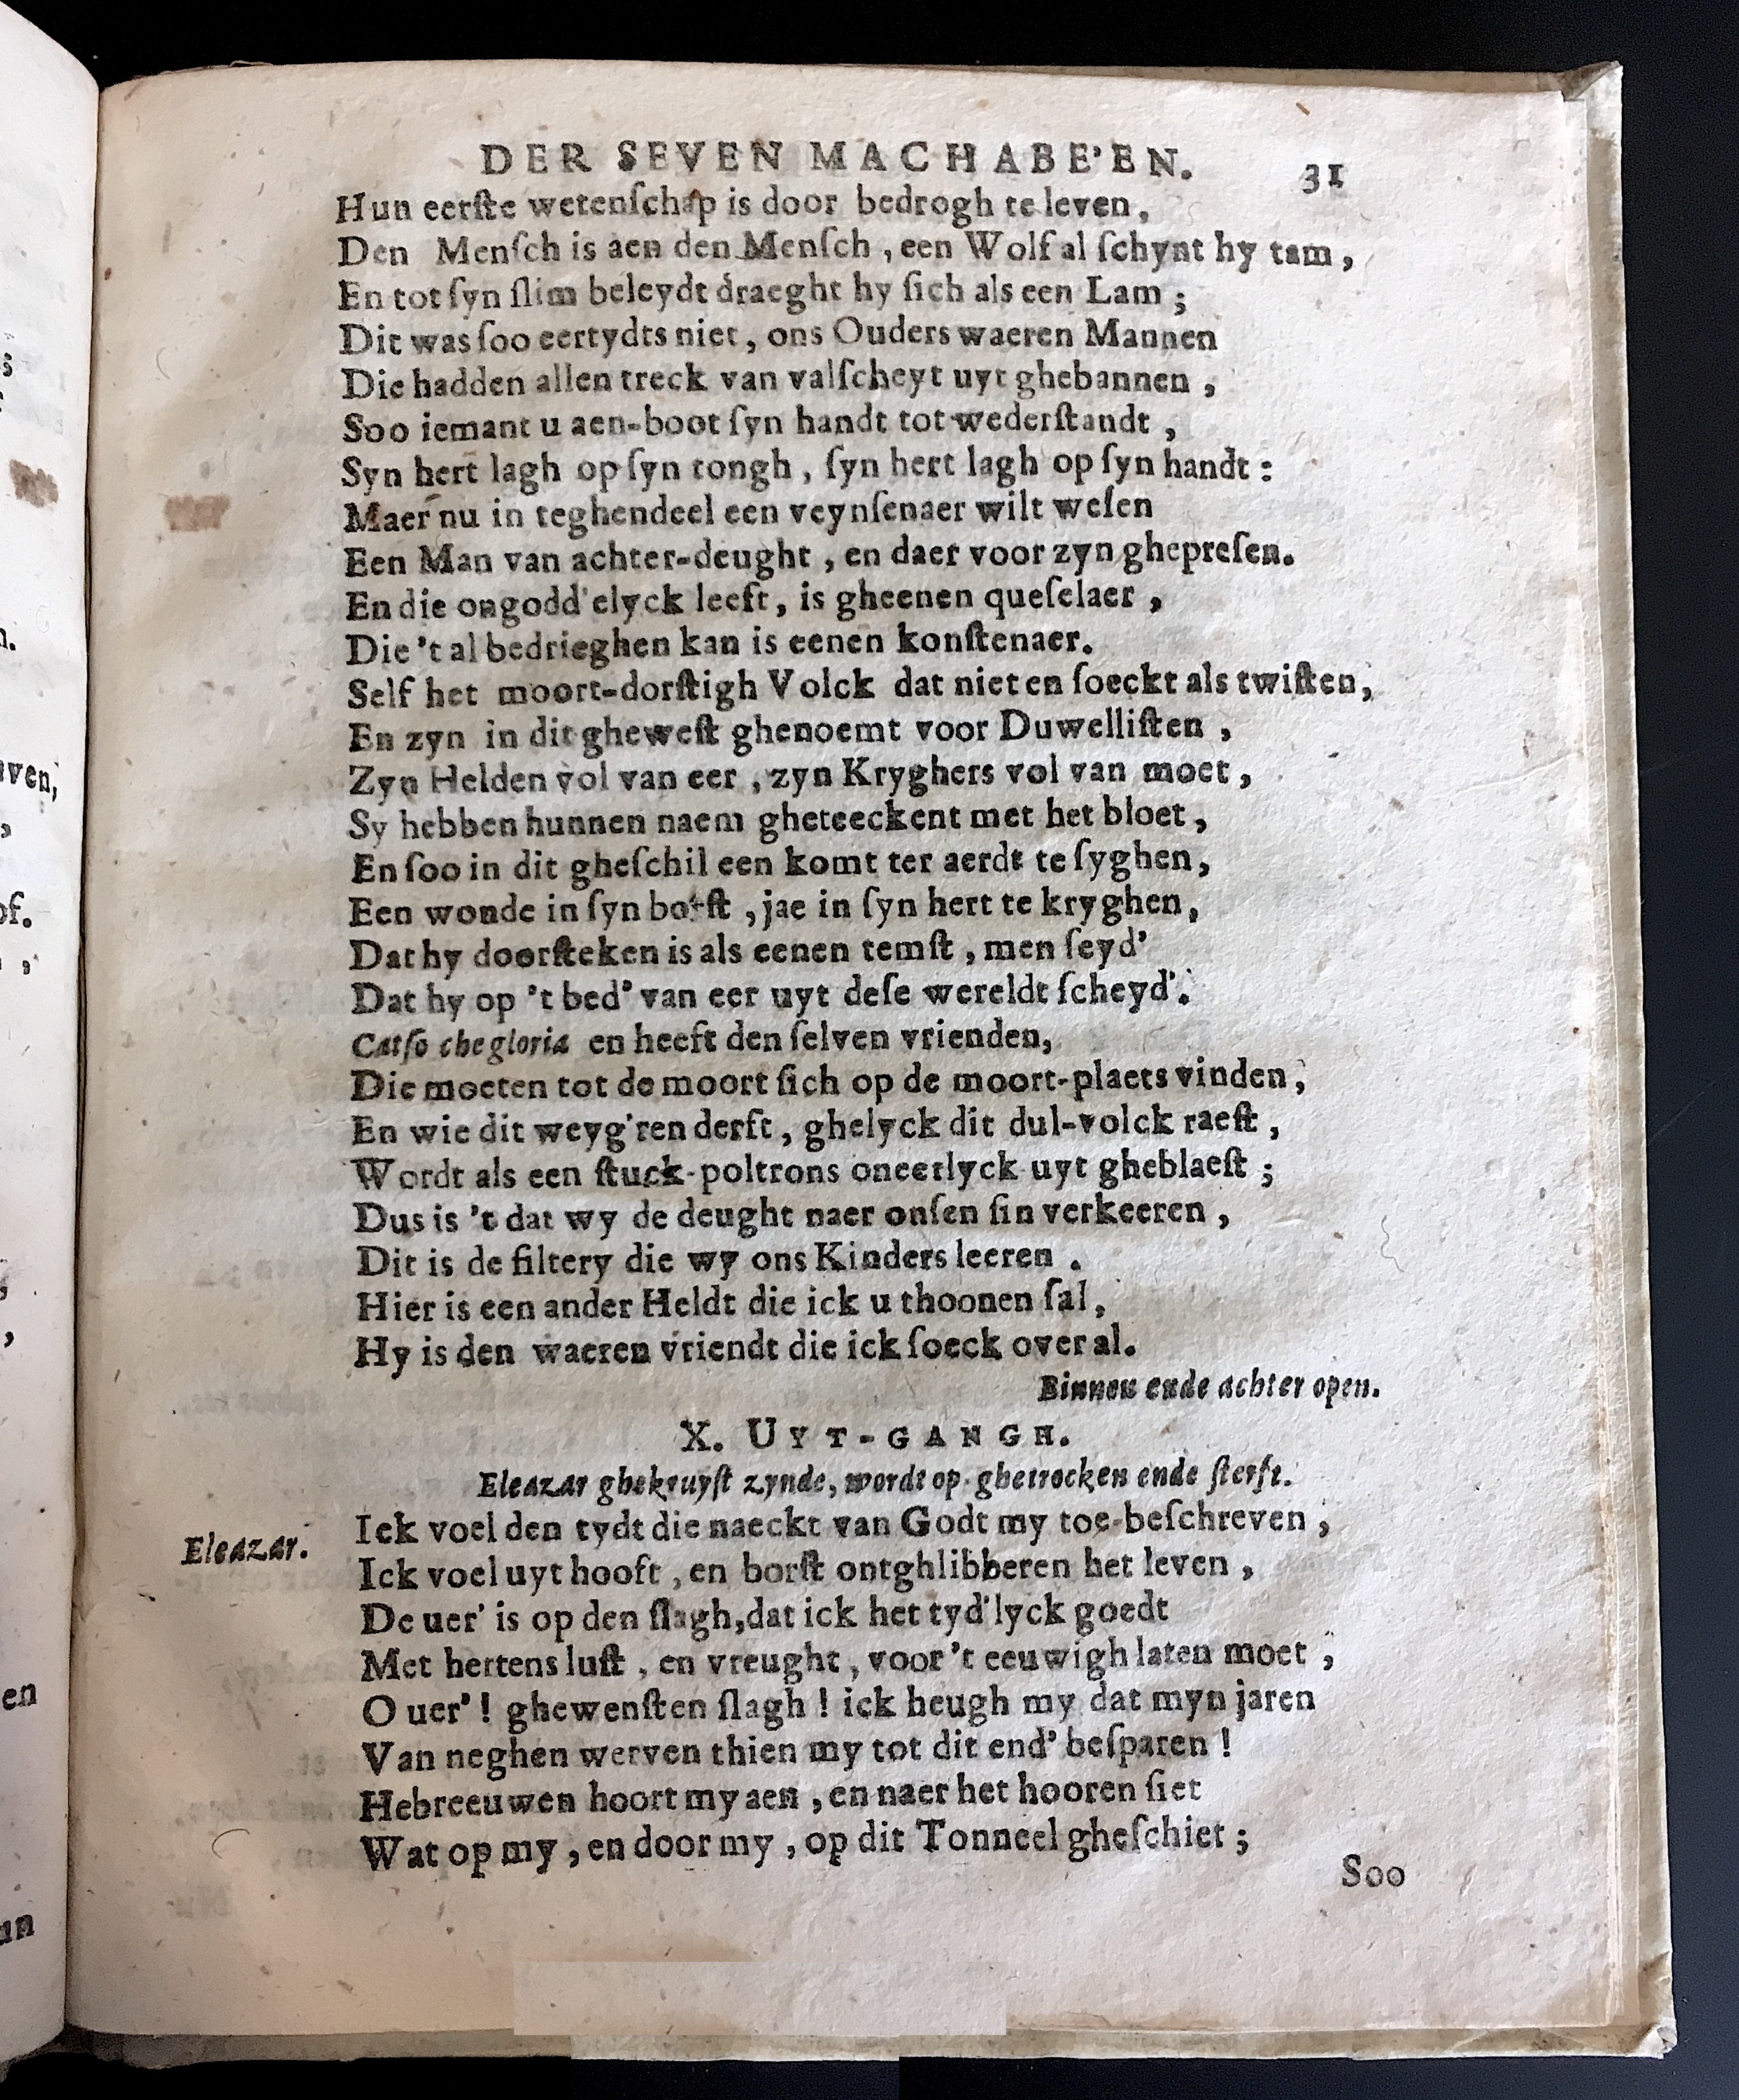 DER SEVEN MACHABE'EN. 31
Hun eerſte wetenſchap is door bedrogh te leven,
Den Menſch is aen den Menſch, een Wolf al ſchynt hy tam,
En tot ſyn ſlim beleydt draeght hy ſich als een Lam;
Dit was ſoo eertydts niet, ons Ouders waeren Mannen
Die hadden allen treck van valſcheyt uyt ghebannen,
Soo iemant u aen-boot ſyn handt tot wederſtandt,
Syn hert lagh op ſyn tongh, ſyn hert lagh op ſyn handt:
Maer nu in teghendeel een veynſenaer wilt weſen
Een Man van achter-deught, en daer voor zyn ghepreſen.
En die ongodd'elyck leeft, is gheenen queſelaer,
Die 't al bedrieghen kan is eenen konſtenaer.
Self het moort-dorſtigh Volck dat niet en ſoeckt als twiſten,
En zyn in dit gheweſt ghenoemt voor Duwelliſten,
Zyn Helden vol van eer, zyn Kryghers vol van moet,
Sy hebben hunnen naem gheteeckent met het bloet,
En ſoo in dit gheſchil een komt ter aerdt te ſyghen,
Een wonde in ſyn borſt, jae in ſyn hert te kryghen,
Dat hy doorſteken is als eenen temſt, men ſeyd'
Dat hy op 't bed' van eer uyt deſe wereldt ſcheyd'.
Catſo che gloria en heeft den ſelven vrienden,
Die moeten tot de moort ſich op de moort-plaets vinden,
En wie dit weyg'ren derft, ghelyck dit dul-volck raeſt,
Wordt als een ſtuck-poltrons oneerlyck uyt gheblaeſt;
Dus is 't dat wy de deught naer onſen ſin verkeeren,
Dit is de filtery die wy ons Kinders leeren.
Hier is een ander Heldt die ick u thoonen ſal,
Hy is den waeren vriendt die ick ſoeck over al.
Binnen ende achter open.
X. UYT-GANGH.
Eleazar ghekruyſt zynde, wordt op-ghetrocken ende ſterft.
Eleazar. Ick voel den tydt die naeckt van Godt my toe-beſchreven,
Ick voel uyt hooft, en borſt ontghlibberen het leven,
De uer' is op den ſlagh, dat ick het tyd'lyck goedt
Met hertens luſt, en vreught, voor 't eeuwigh laten moet;
O uer'! ghewenſten ſlagh! ick heugh my dat myn jaren
Van neghen werven thien my tot dit end' beſparen!
Hebreeuwen hoort my aen, en naer het hooren ſiet
Wat op my, en door my, op dit Tonneel gheſchiet;
Soo